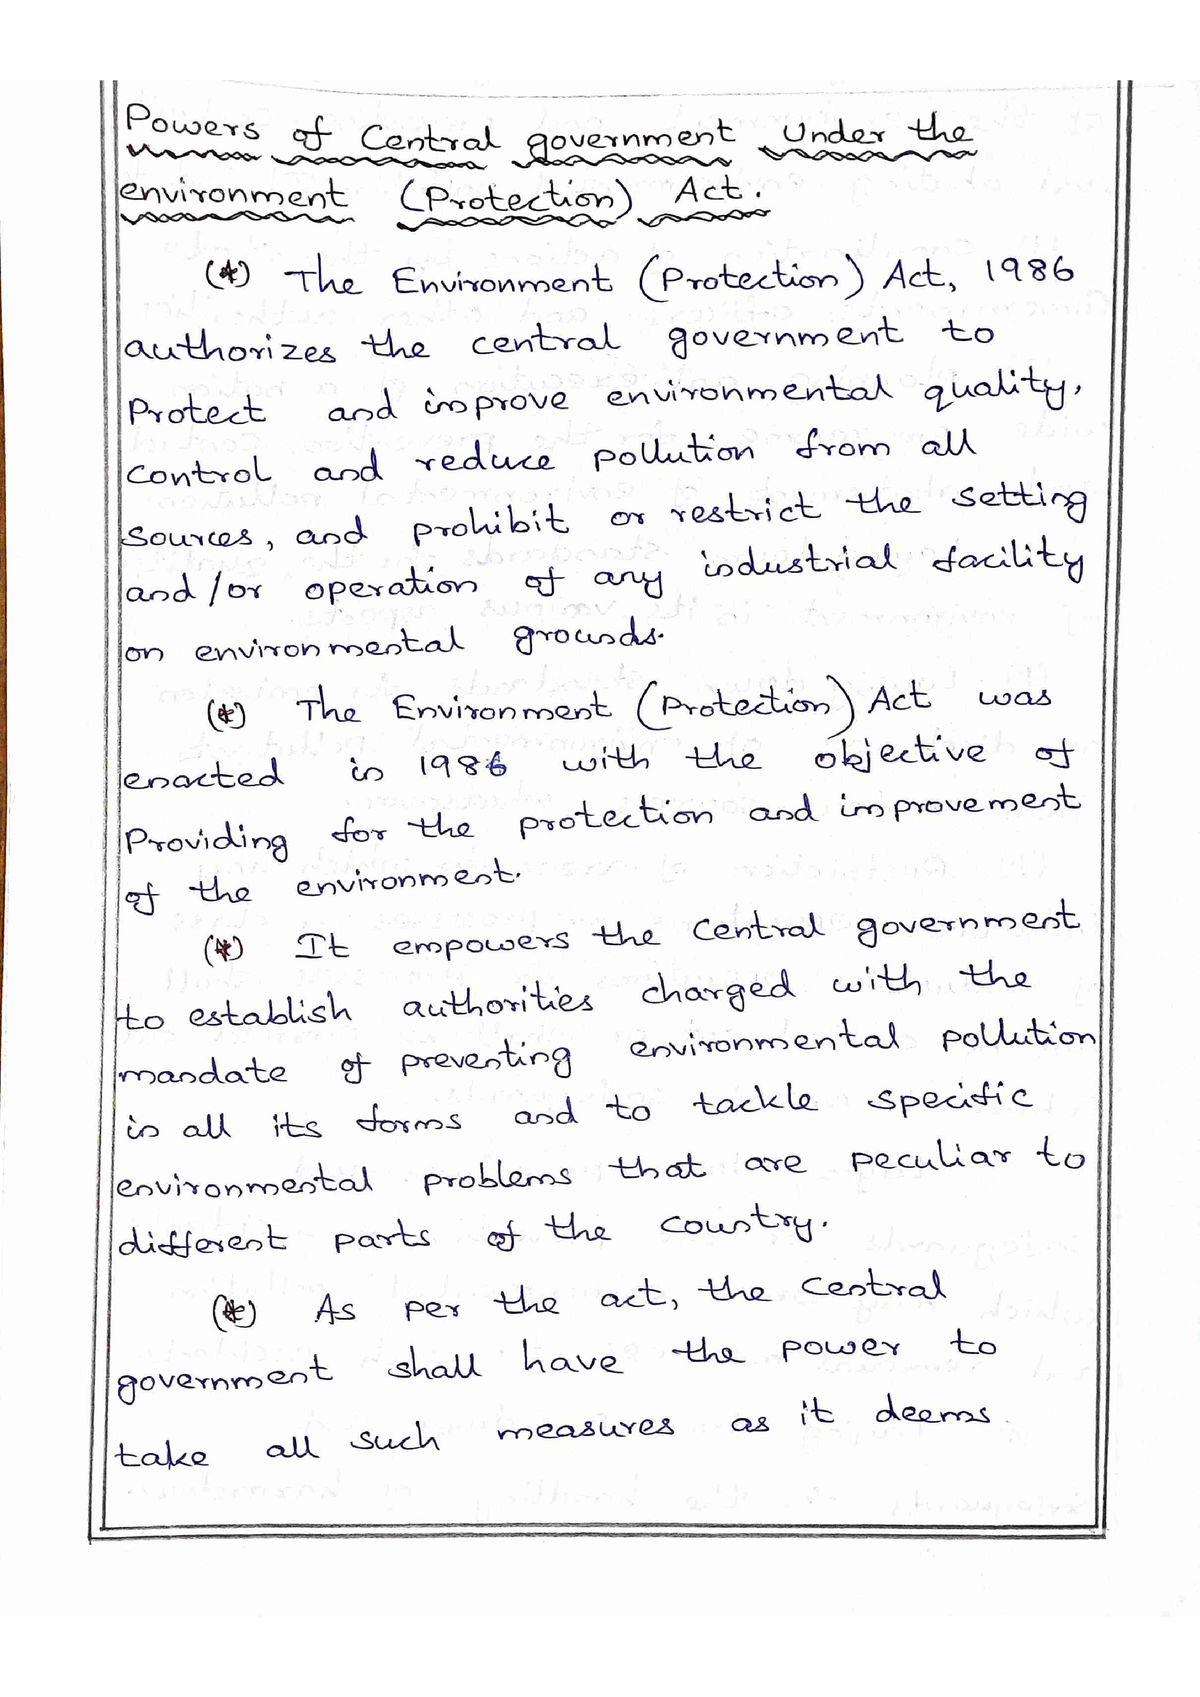 Powers of Central government Under the
environment (Protection) Act.
(*) The Environment (Protection) Act, 1986
authorizes the central government to
Protect and improve environmental quality,
control and reduce pollution from all
Sources, and prohibit or restrict the setting
and/or operation of any industrial facility
on environmental grounds.
(*) The Environment (Protection) Act was
enacted in 1986 with the objective of
Providing for the protection and improvement
of the environment.
(*) It empowers the Central government
to establish authorities charged with the
mandate of preventing environmental pollution
in all its forms and to tackle specific
environmental problems that are peculiar to
different parts of the country.
(*) As per the act, the Central
government shall have the power to
take all such measures as it deems